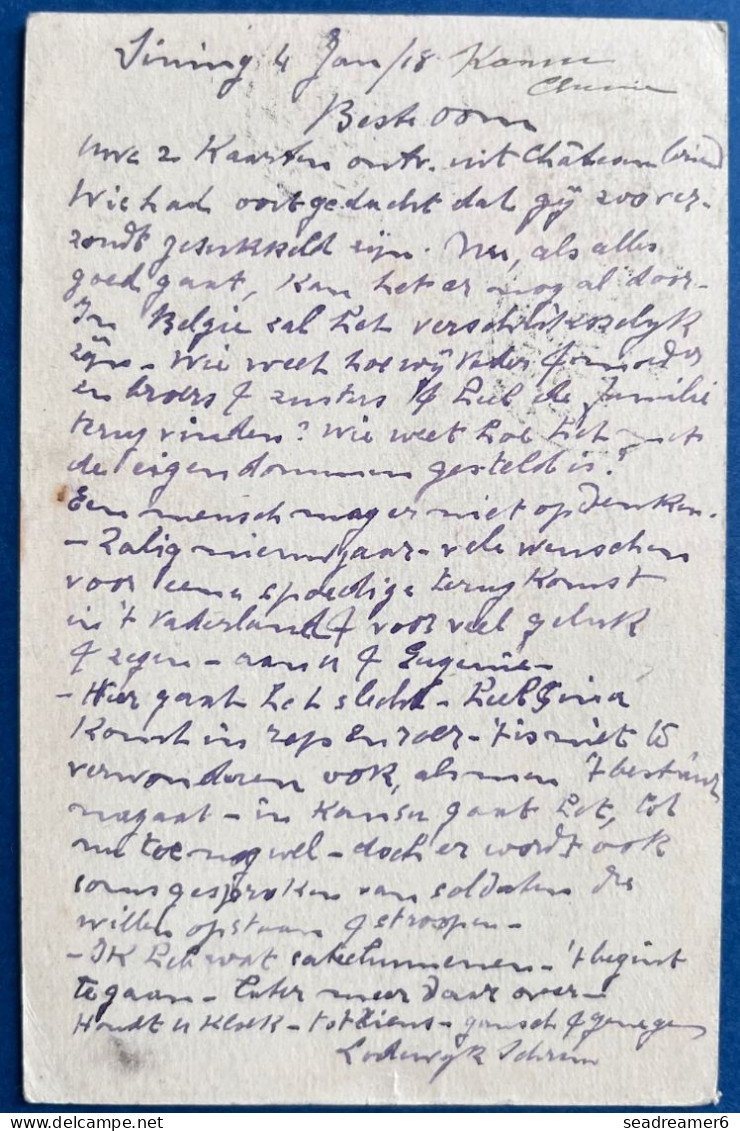 Sining 4 Jan/18 Kansu
Chine
Beste Oom
Uwe 2 Kaarten ontv. uit Château
Wie had ooit gedacht dat gij zoo ver-
zondt gesukkeld zijn. Nu, als alles
goed gaat, kan het er nog al door-
In Belgie zal het verschrikkelijk
zijn - Wie weet hoe wij vader & moeder
en broers & zusters & heel de familie
terug vinden? Wie weet hoe het met
de eigendommen gesteld is?
Een mensch mag er niet op denken.
- Zalig nieuwjaar - vele wenschen
voor eene spoedige terugkomst
in 't vaderland & voor veel geluk
& zegen - aan u & Eugenie -
- Hier gaat het slecht - heel China
komt in rep en roer - 't is niet te
verwonderen ook, als men 't bestuur
nagaat - in Kansu gaat het, tot
nu toe nog wel - doch er wordt ook
soms gesproken van soldaten die
willen opstaan & stroopen -
- Ik heb wat - 't begint
te gaan - later meer daar over -
Houdt u kloek - tot ziens - gansch & genegen
Lodewijk
seadreamer6
© delcampe.net